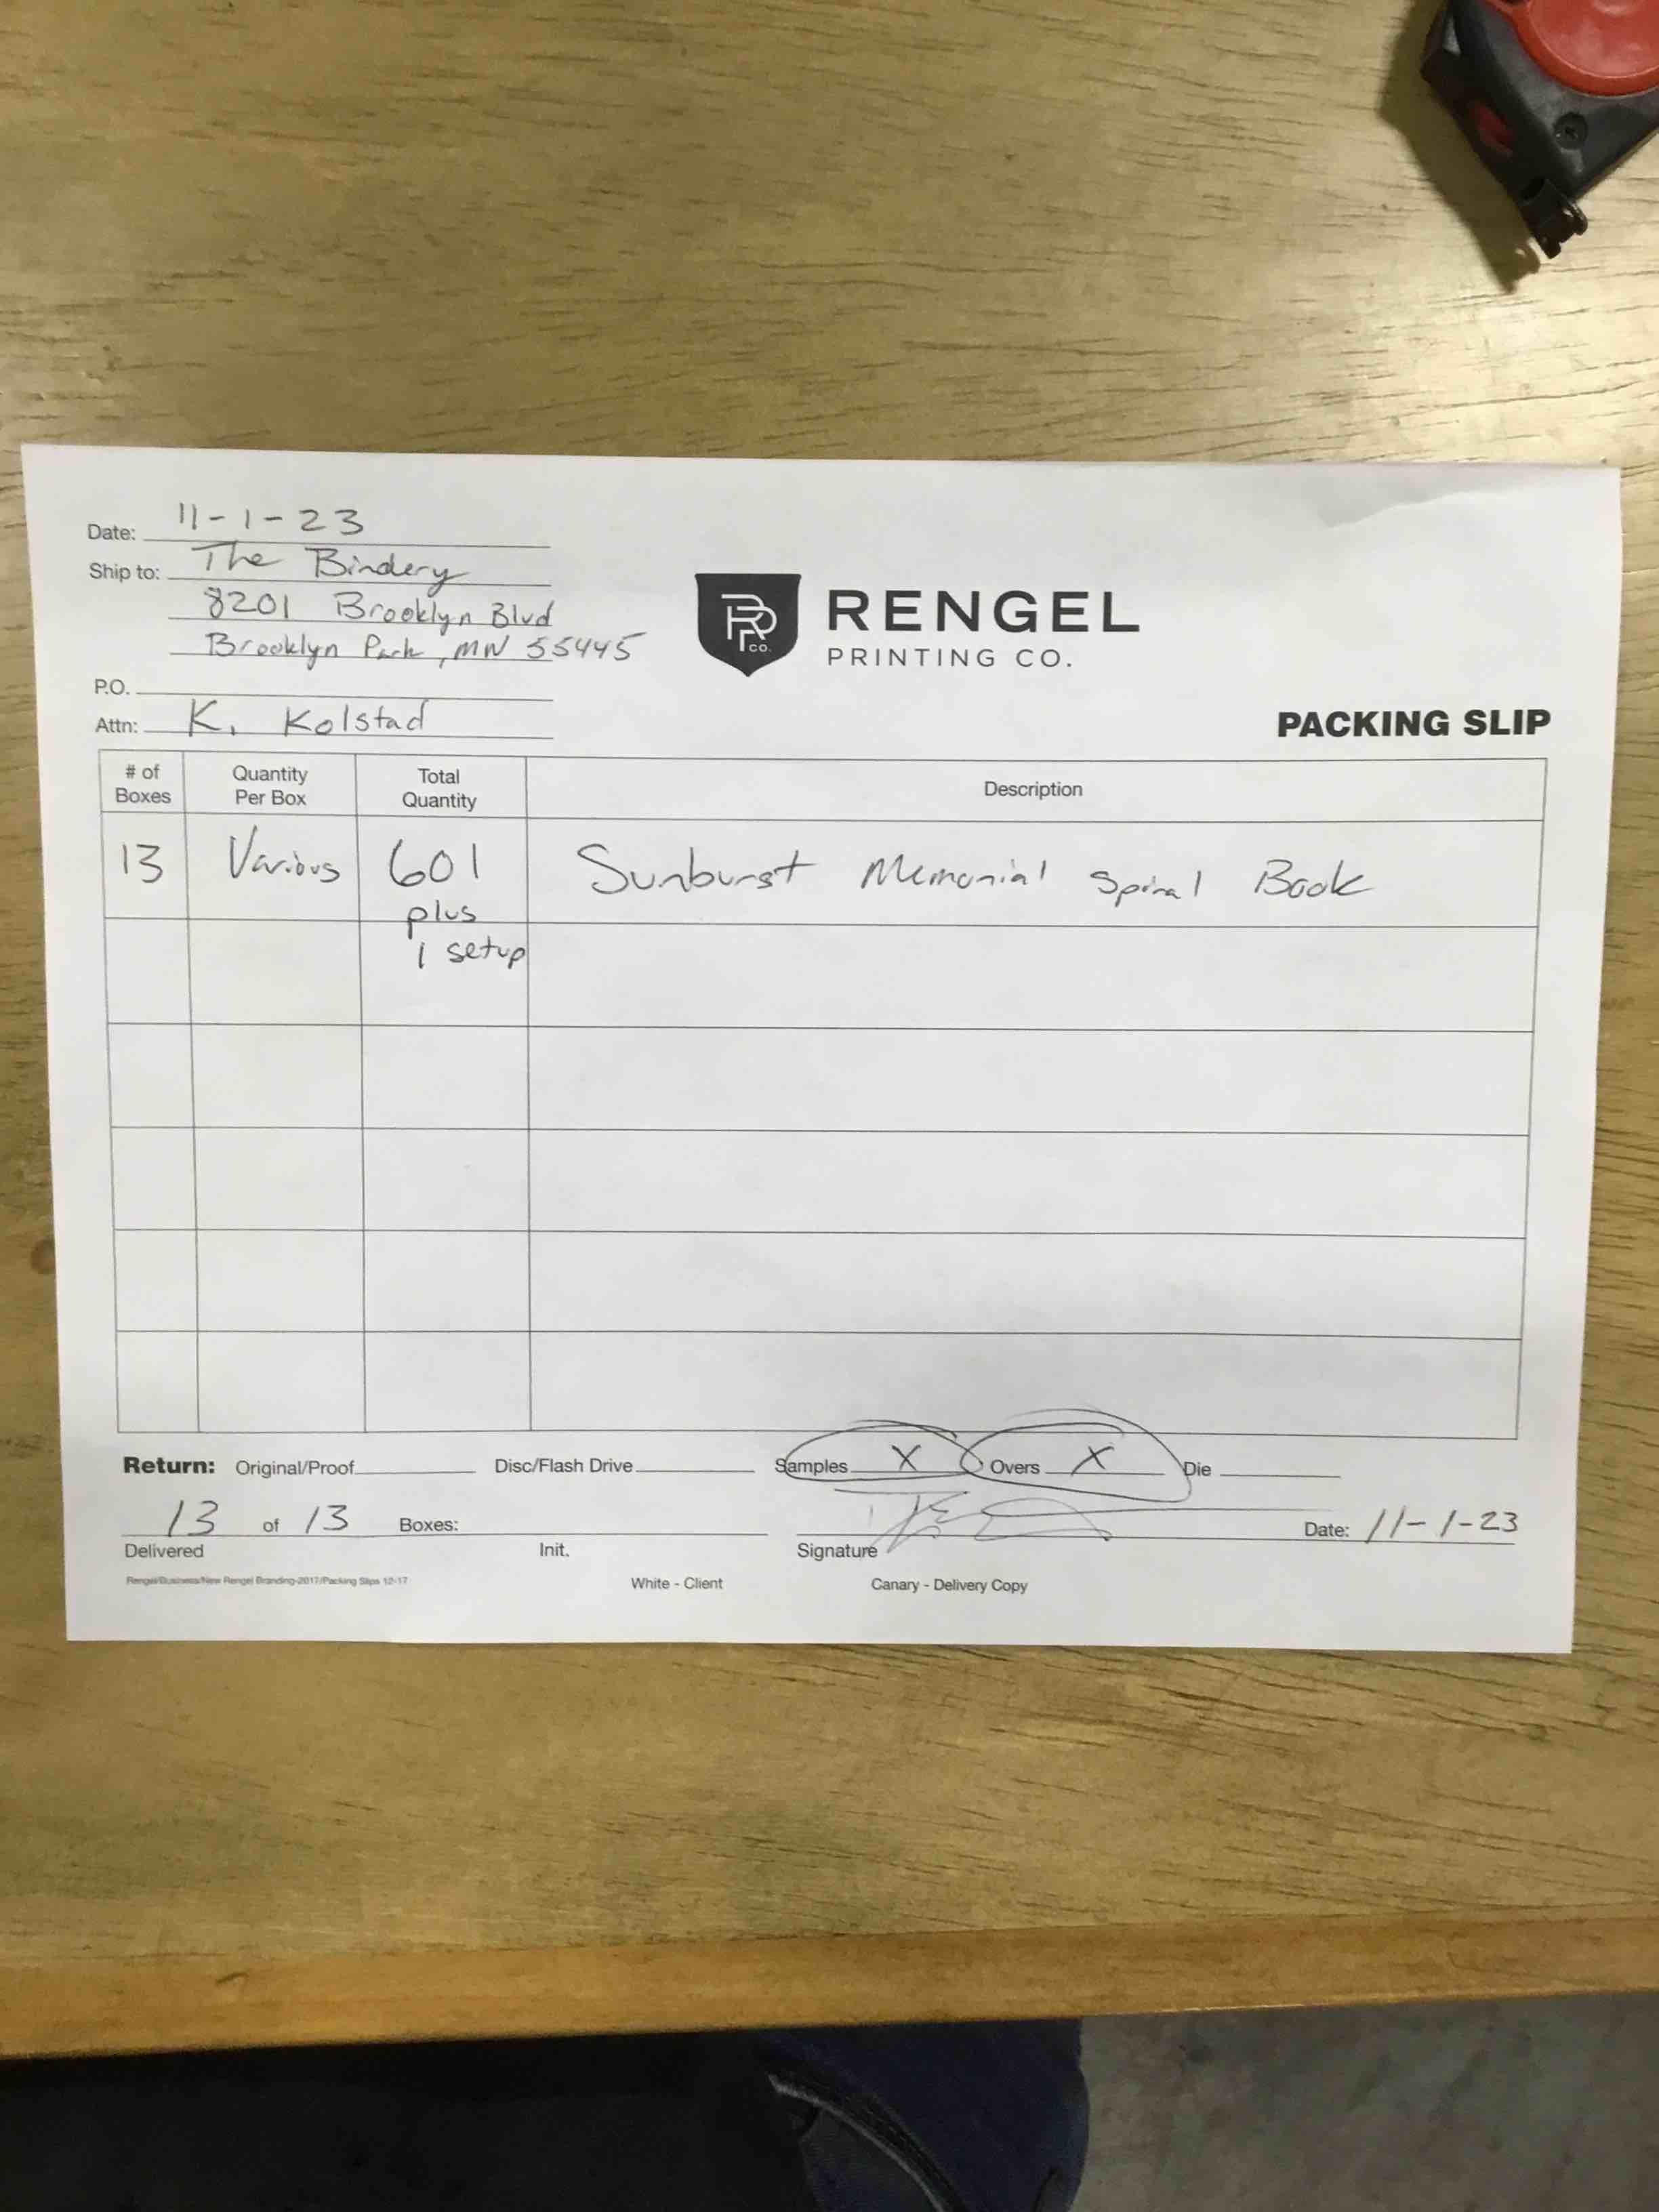 Date: 11-1-23
Ship to: The Bindery
8201 Brooklyn Blvd
Brooklyn Park, MN 55445
P.O.
Attn: K. Kolstad
RENGEL
PRINTING CO.
PACKING SLIP
# of Boxes Quantity Per Box Total Quantity Description
13 Various 601 Sunburst Memorial Spiral Book
plus
1 setup
Return: Original/Proof Disc/Flash Drive Samples X Overs X Die
13 of 13 Boxes: Date: 11-1-23
Delivered Init. Signature
Rengel/Business/New Rengel Branding-2017/Packing Slips 12-17 White - Client Canary - Delivery Copy